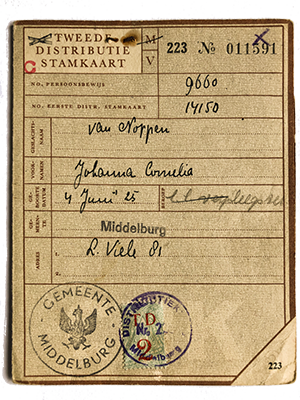 TWEEDE
DISTRIBUTIE
STAMKAART
C
M
V
223 No 011591
NO. PERSOONSBEWIJS 9660
NO. EERSTE DISTR. STAMKAART 14150
GESLACHTSNAAM van Noppen
VOORNAMEN Johanna Cornelia
GEBOORTEDATUM 4 Juni 25 BEROEP
GEMEENTE Middelburg
ADRES 1. R. Viele 81
2.
3.
GEMEENTE MIDDELBURG
DISTRIBUTIE
No 2
Middelburg
T.D.
2
223